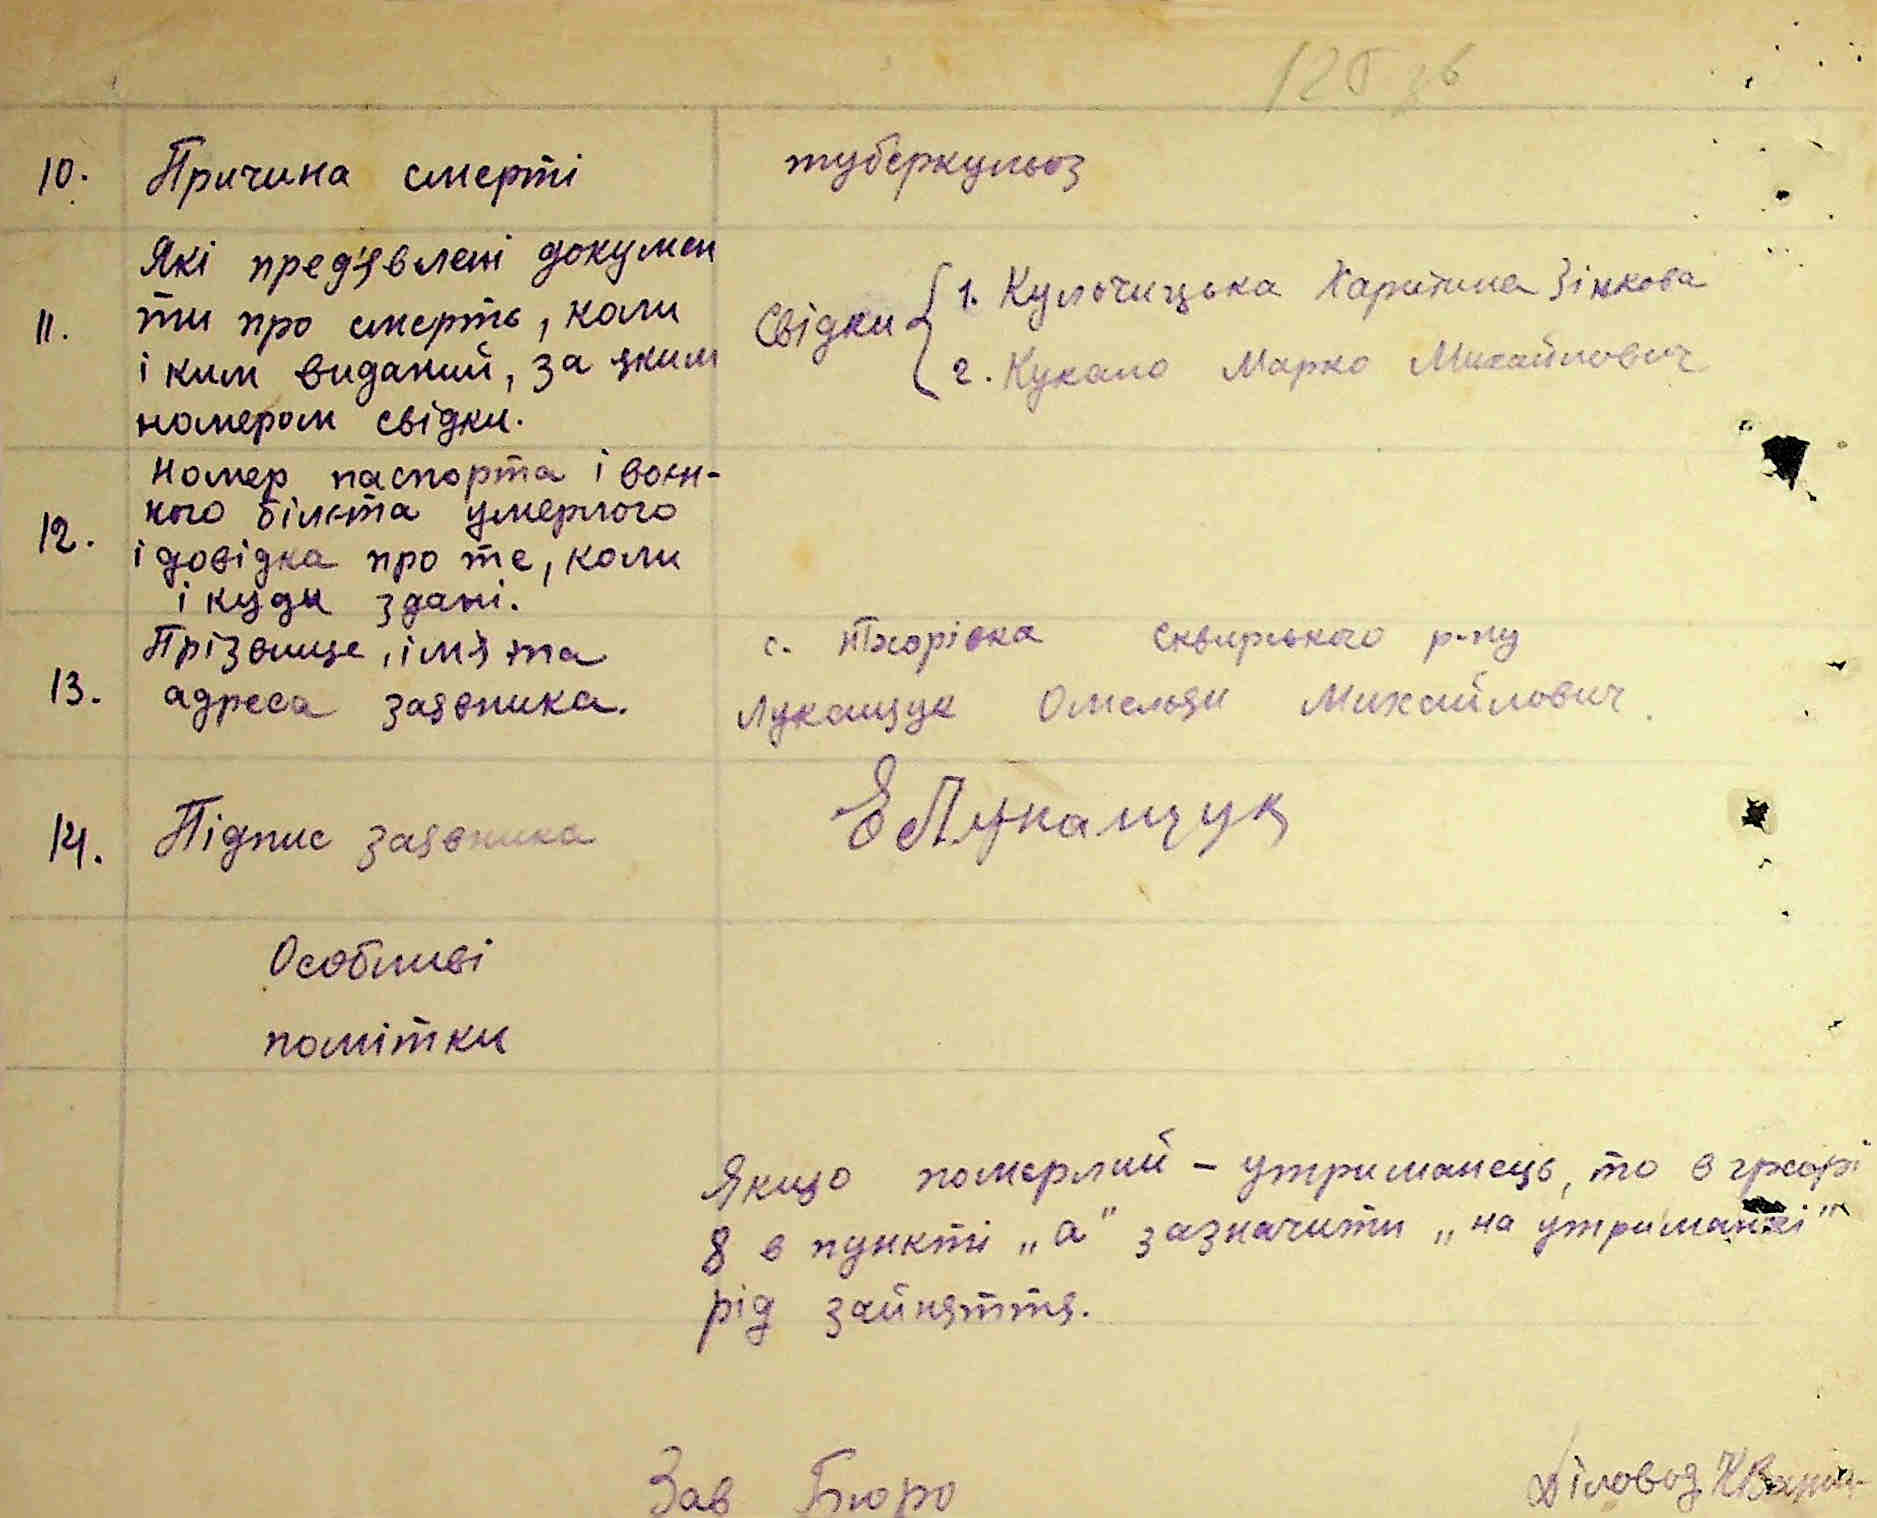 125 зв
10. Причина смерті туберкульоз
11. Які пред'явлені докумен
ти про смерть, коли
і ким виданий, за яким
номером свідки.
Свідки 1. Кульчицька Харитина Зінкова
2. Кукало Марко Михайлович
12. Номер паспорта і воєн-
ного білєта умерлого
і довідка про те, коли
і куди здані.
13. Прізвище, ім'я та
адреса заявника.
с. Тхорівка Сквирського р-ну
Лукащук Омельян Михайлович.
14. Підпис заявника ЕЛукащук
Особливі
помітки
Якщо померлий – утриманець, то в графі
8 в пункті „а" зазначити „на утриманні"
рід зайняття.
Зав Бюро Діловод